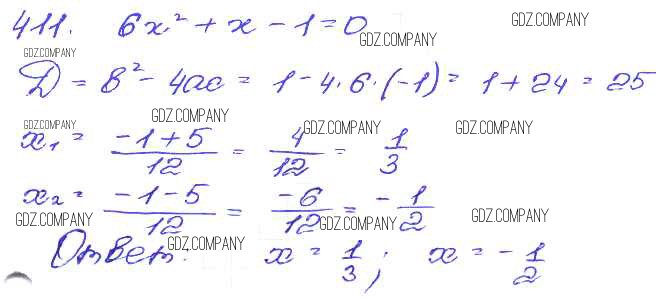 411. 6x² + x - 1 = 0
GDZ.COMPANY
GDZ.COMPANY
GDZ.COMPANY
D = b² - 4ac = 1 - 4·6·(-1) = 1 + 24 = 25
GDZ.COMPANY
GDZ.COMPANY GDZ.COMPANY GDZ.COMPANY
x₁ = (-1+5)/12 = 4/12 = 1/3
x₂ = (-1-5)/12 = -6/12 = -1/2
GDZ.COMPANY GDZ.COMPANY GDZ.COMPANY
GDZ.COMPANY
Ответ: x = 1/3; x = -1/2